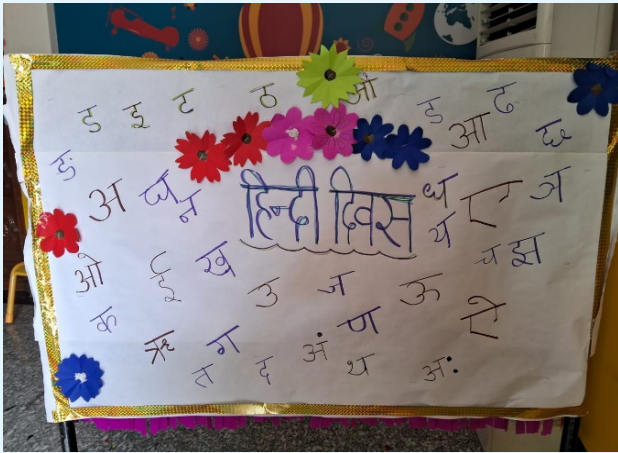 ड इ ट ठ ओ ड ढ
आ छ
ङ
अ घ न
हिन्दी दिवस
ध ए ञ
य
ओ ई ख च झ
उ ज ऊ
क ण ऐ
ऋ ग
त द अं थ अः